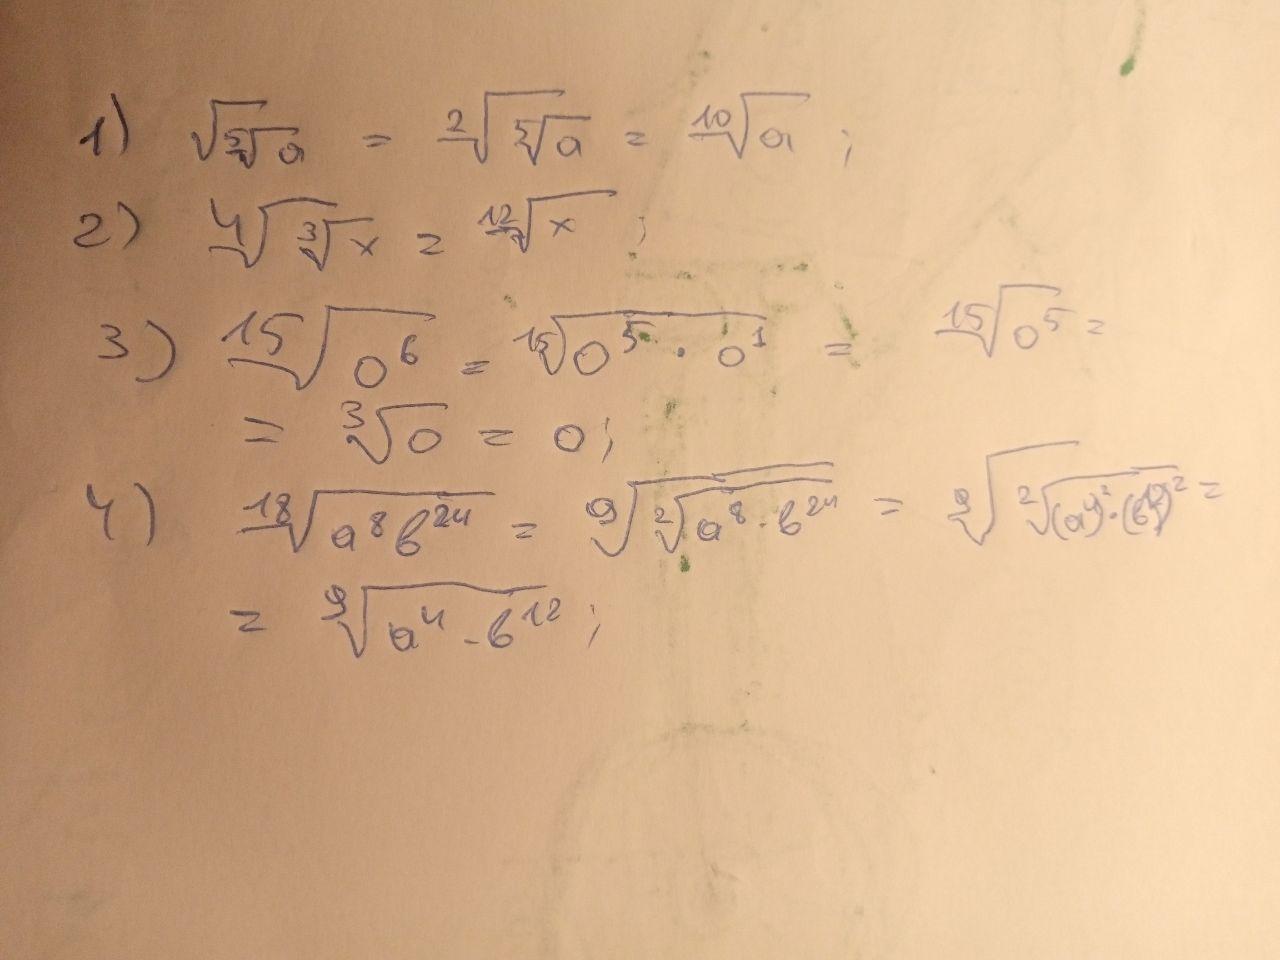 1) √(⁵√a) = ²√(⁵√a) = ¹⁰√a ;
2) ⁴√(³√x) = ¹²√x ;
3) ¹⁵√(0⁶) = ¹⁵√(0⁵ · 0¹) = ¹⁵√(0⁵) =
= ³√0 = 0 ;
4) ¹⁸√(a⁸b²⁴) = ⁹√(²√(a⁸ · b²⁴)) = ⁹√(²√((a⁴)² · (b¹²)²)) =
= ⁹√(a⁴ · b¹²) ;